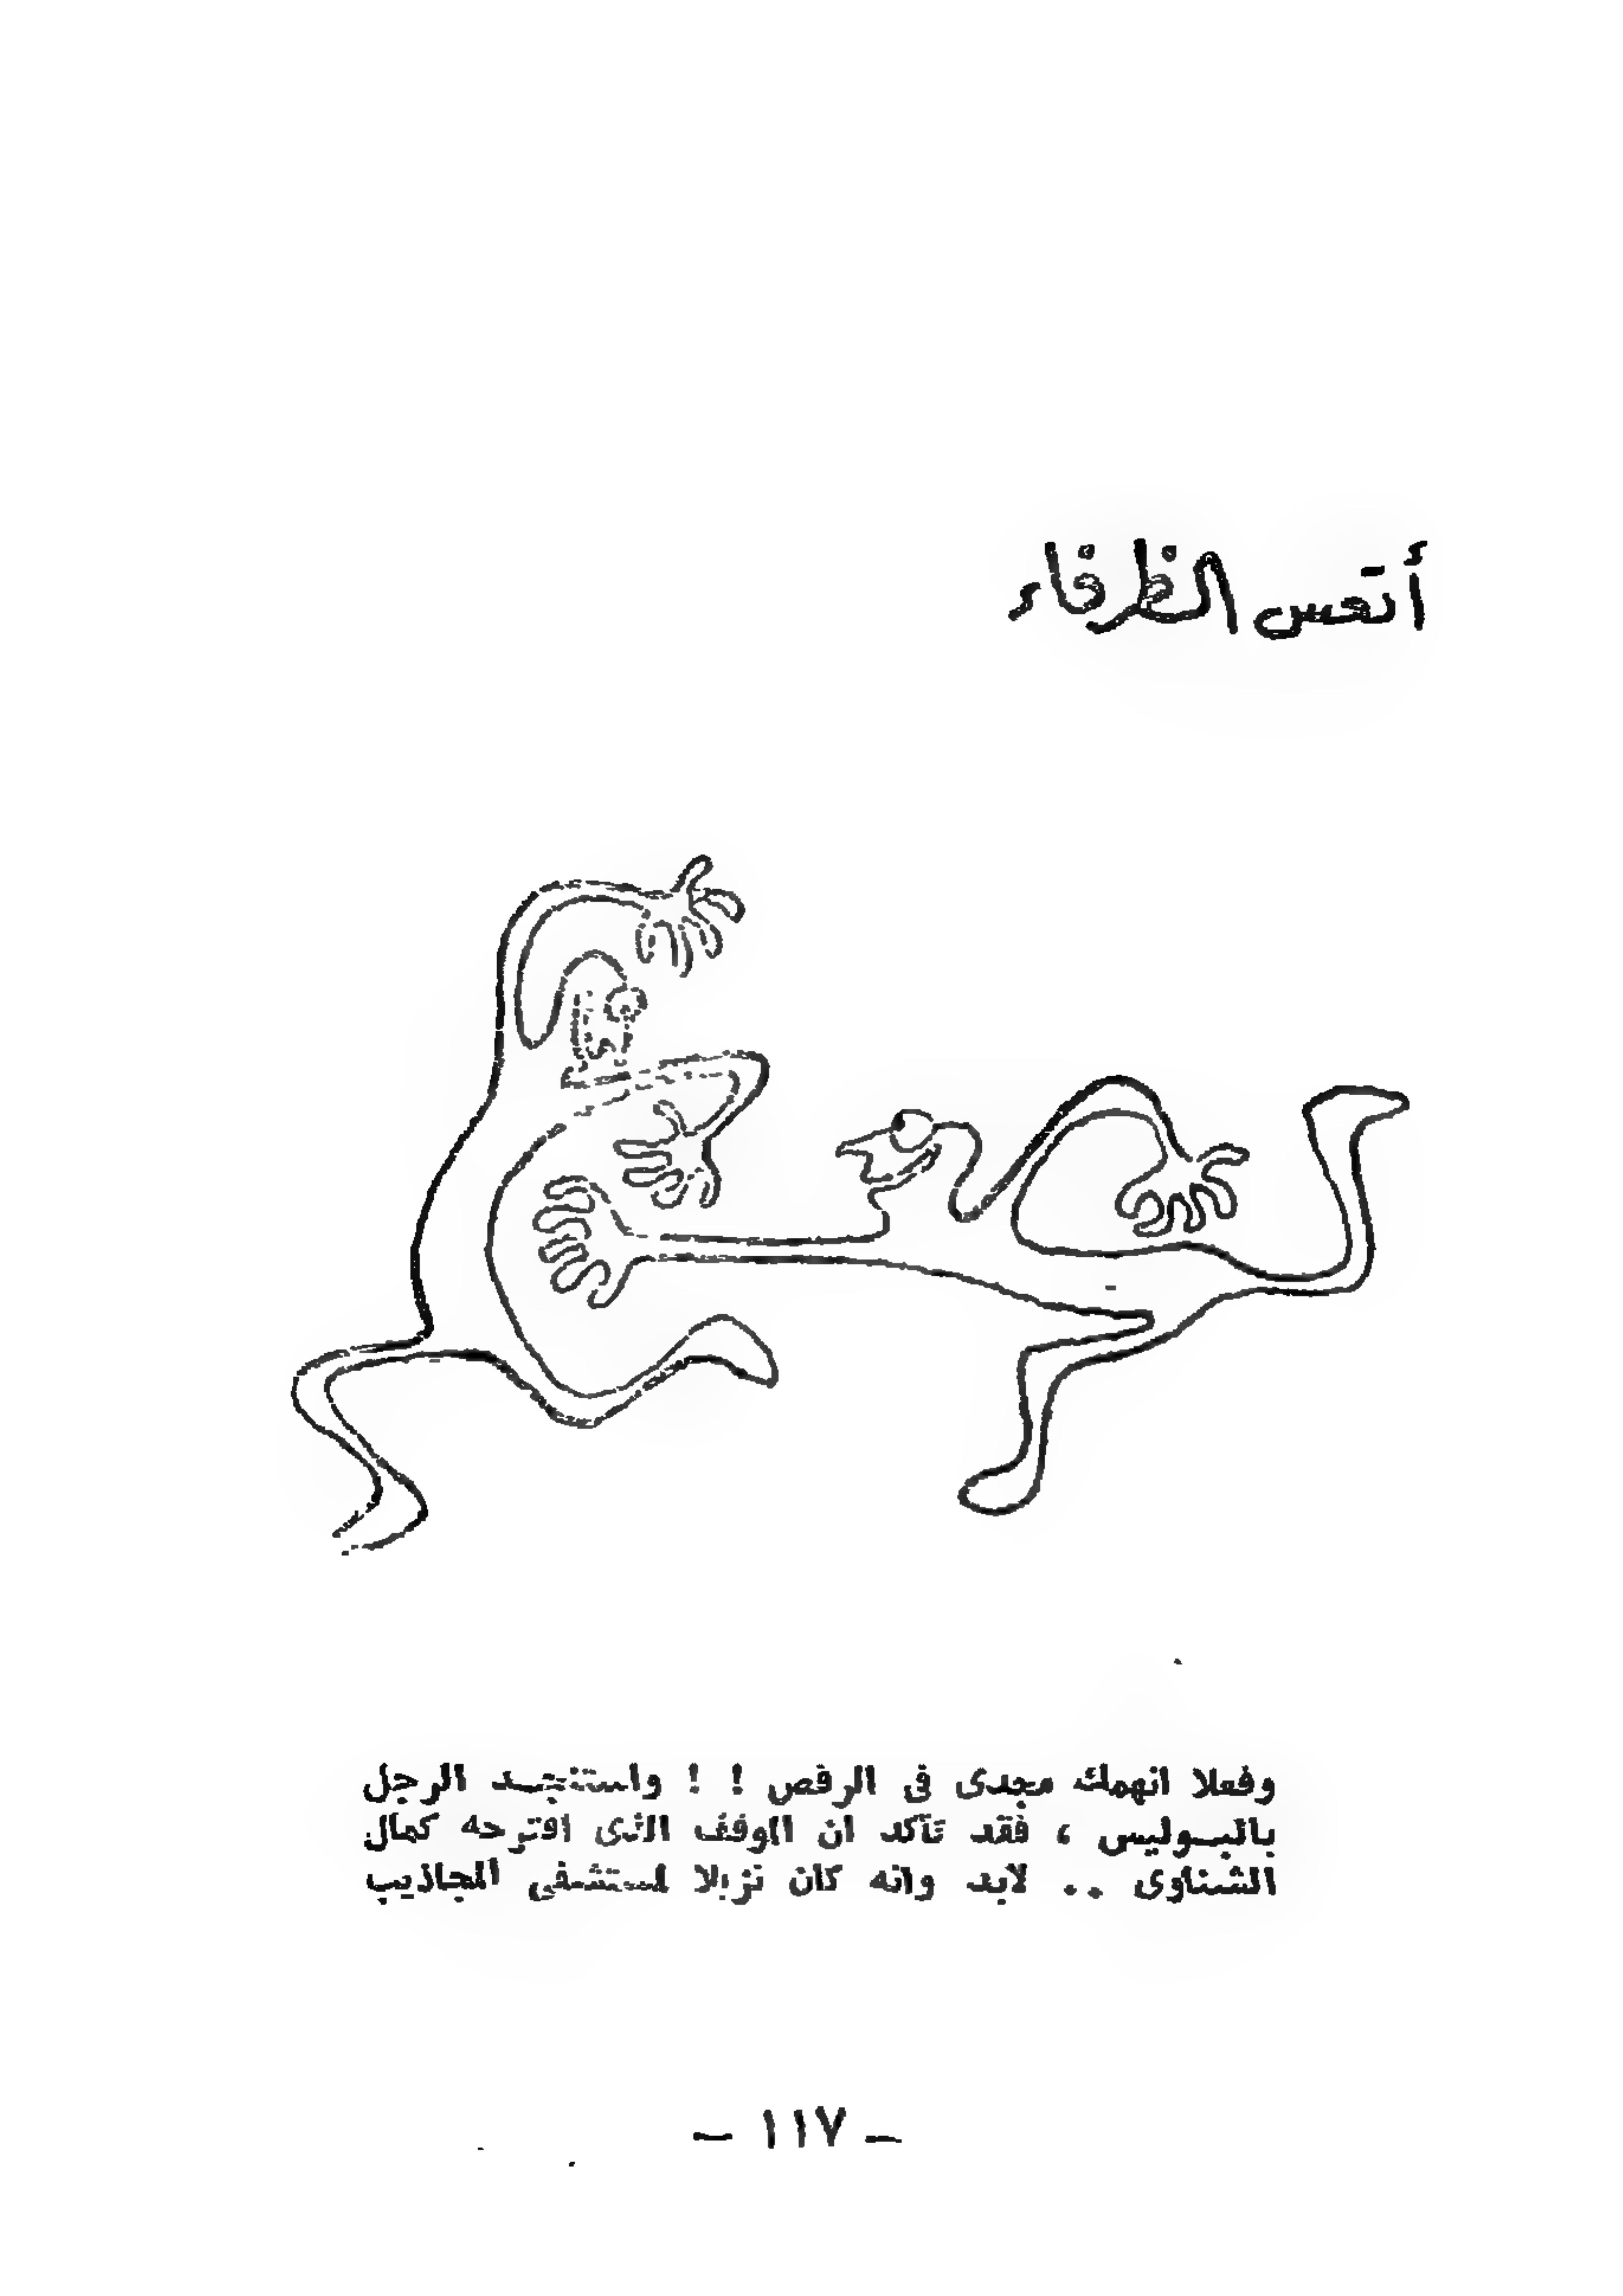 أتعس الظرفاء
وفعلا انهمك مجدى فى الرقص ! ! واستنجـد الرجل
بالبـوليس ، فقد تأكد ان الوقف الذى اقترحه كمال
الشناوى .. لابد وانه كان نزيلا لمستشفى المجاذيب
— ١١٧ —